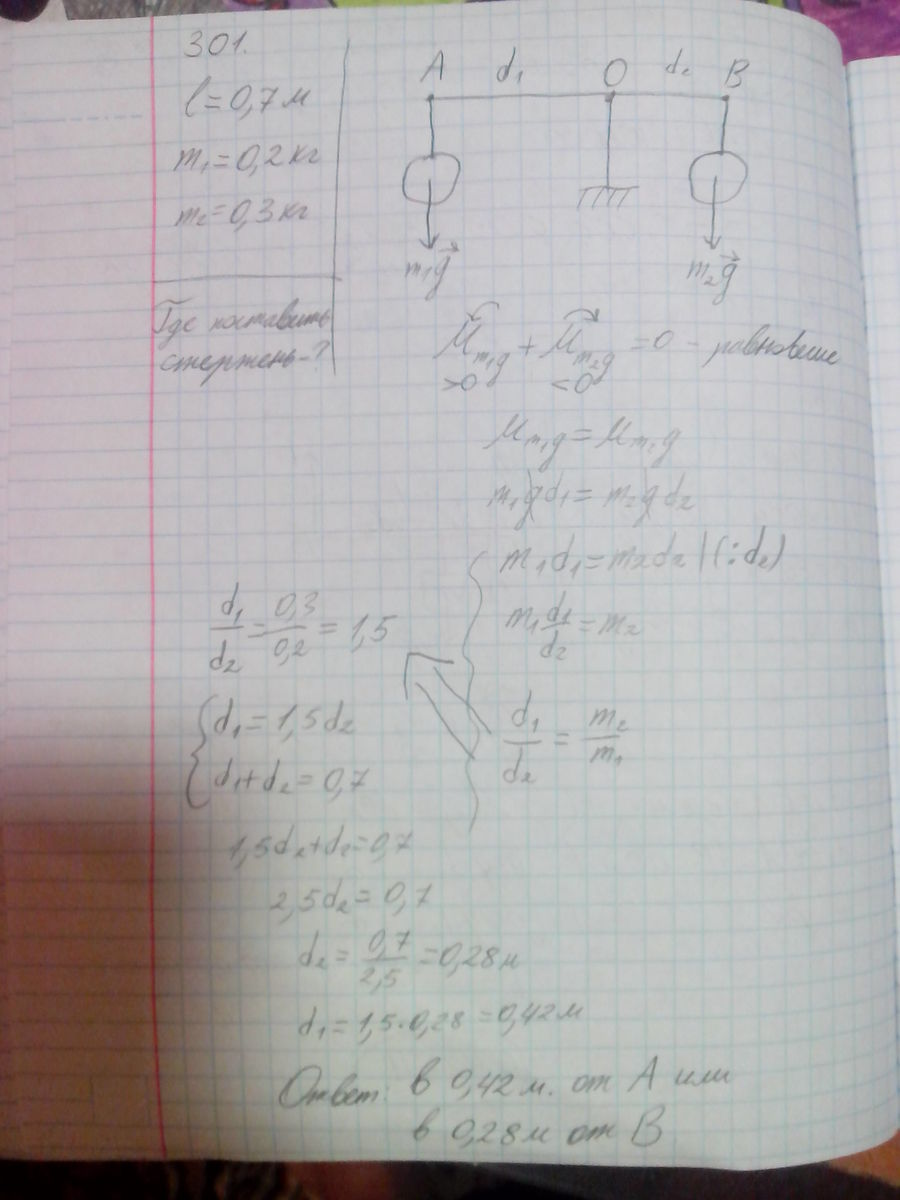 301.
l=0,7м
m₁=0,2кг
m₂=0,3кг
Где поставить
стержень-?
A d₁ O d₂ B
m₁g⃗ m₂g⃗
M m₁g + M m₂g =0 - равновесие
>0 <0
M m₁g = M m₂g
m₁gd₁ = m₂gd₂
m₁d₁=m₂d₂ |(:d₂)
m₁ d₁/d₂ = m₂
d₁/d₂ = m₂/m₁
d₁/d₂ = 0,3/0,2 = 1,5
d₁=1,5d₂
d₁+d₂=0,7
1,5d₂+d₂=0,7
2,5d₂=0,7
d₂= 0,7/2,5 =0,28м
d₁=1,5·0,28=0,42м
Ответ: в 0,42м. от A или
в 0,28м от B